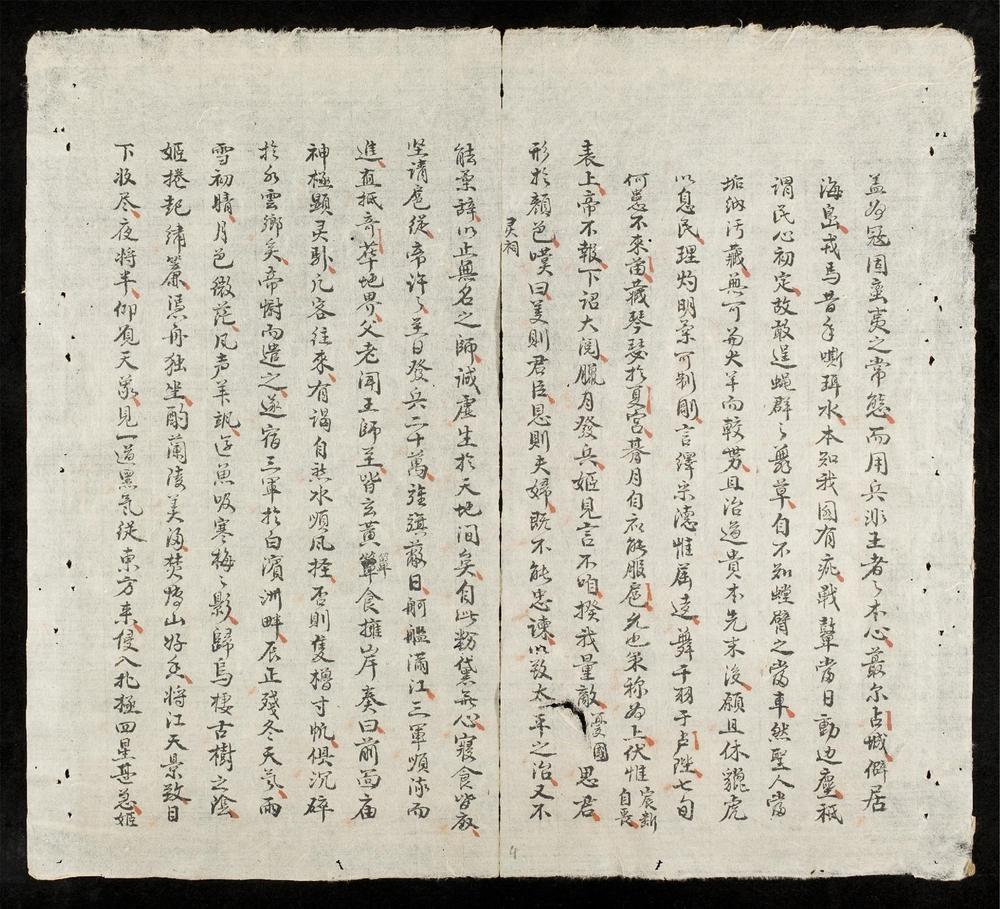 盖為冦固蛮夷之常態而用兵非王者之本心蕞尔占城僻居
海島戎馬昔年嘶珥水本知我國有疵戰鼙當日動边塵秪
謂民心初定故敢逞蝇群之舞草自不知螳臂之當車然聖人當
垢納污藏無可為犬羊而較劳且治道貴本先末後願且休貔虎
以息民理灼明策可制剛言繹宋德惟届逵舞干羽于声陛七旬
何患不來苗藏琴瑟扵夏宮朞月自古能服扈先也策称為上伏惟宸断自畏
表上帝不報下诏大閱臘月發兵姬見言不啣揆我量敵憂國思君
形扵顔色嘆曰美則君臣恩則夫婦既不能忠諫以致太平之治又不
灵祠
能藁辞以止無名之師誠虚生扵天地间矣自此粉黛無心寢食皆廢
坚请扈從帝许之至日發兵二十萬旌旗蔽日舸艦滿江三軍順流而
進直抵奇華地界父老闻王師至皆玄黄簞食擁岸奏曰前面庙
神極顕灵卧凡客往來有谒自然水順風扵否則隻櫓寸帆俱沉碎
扵水雲鄉矣帝慰而遣之遂宿三軍扵白濱洲畔辰正殘冬天氣雨
雪初晴月色微茫风声美飒逰魚吸寒梅之影歸烏棲古樹之陰
姬捲起繡簾凭舟独坐酌蘭陵美酒焚博山好香将江天景致目
下收尽夜将半仰观天象見一道黑氣從東方来侵入北極四星甚急姬